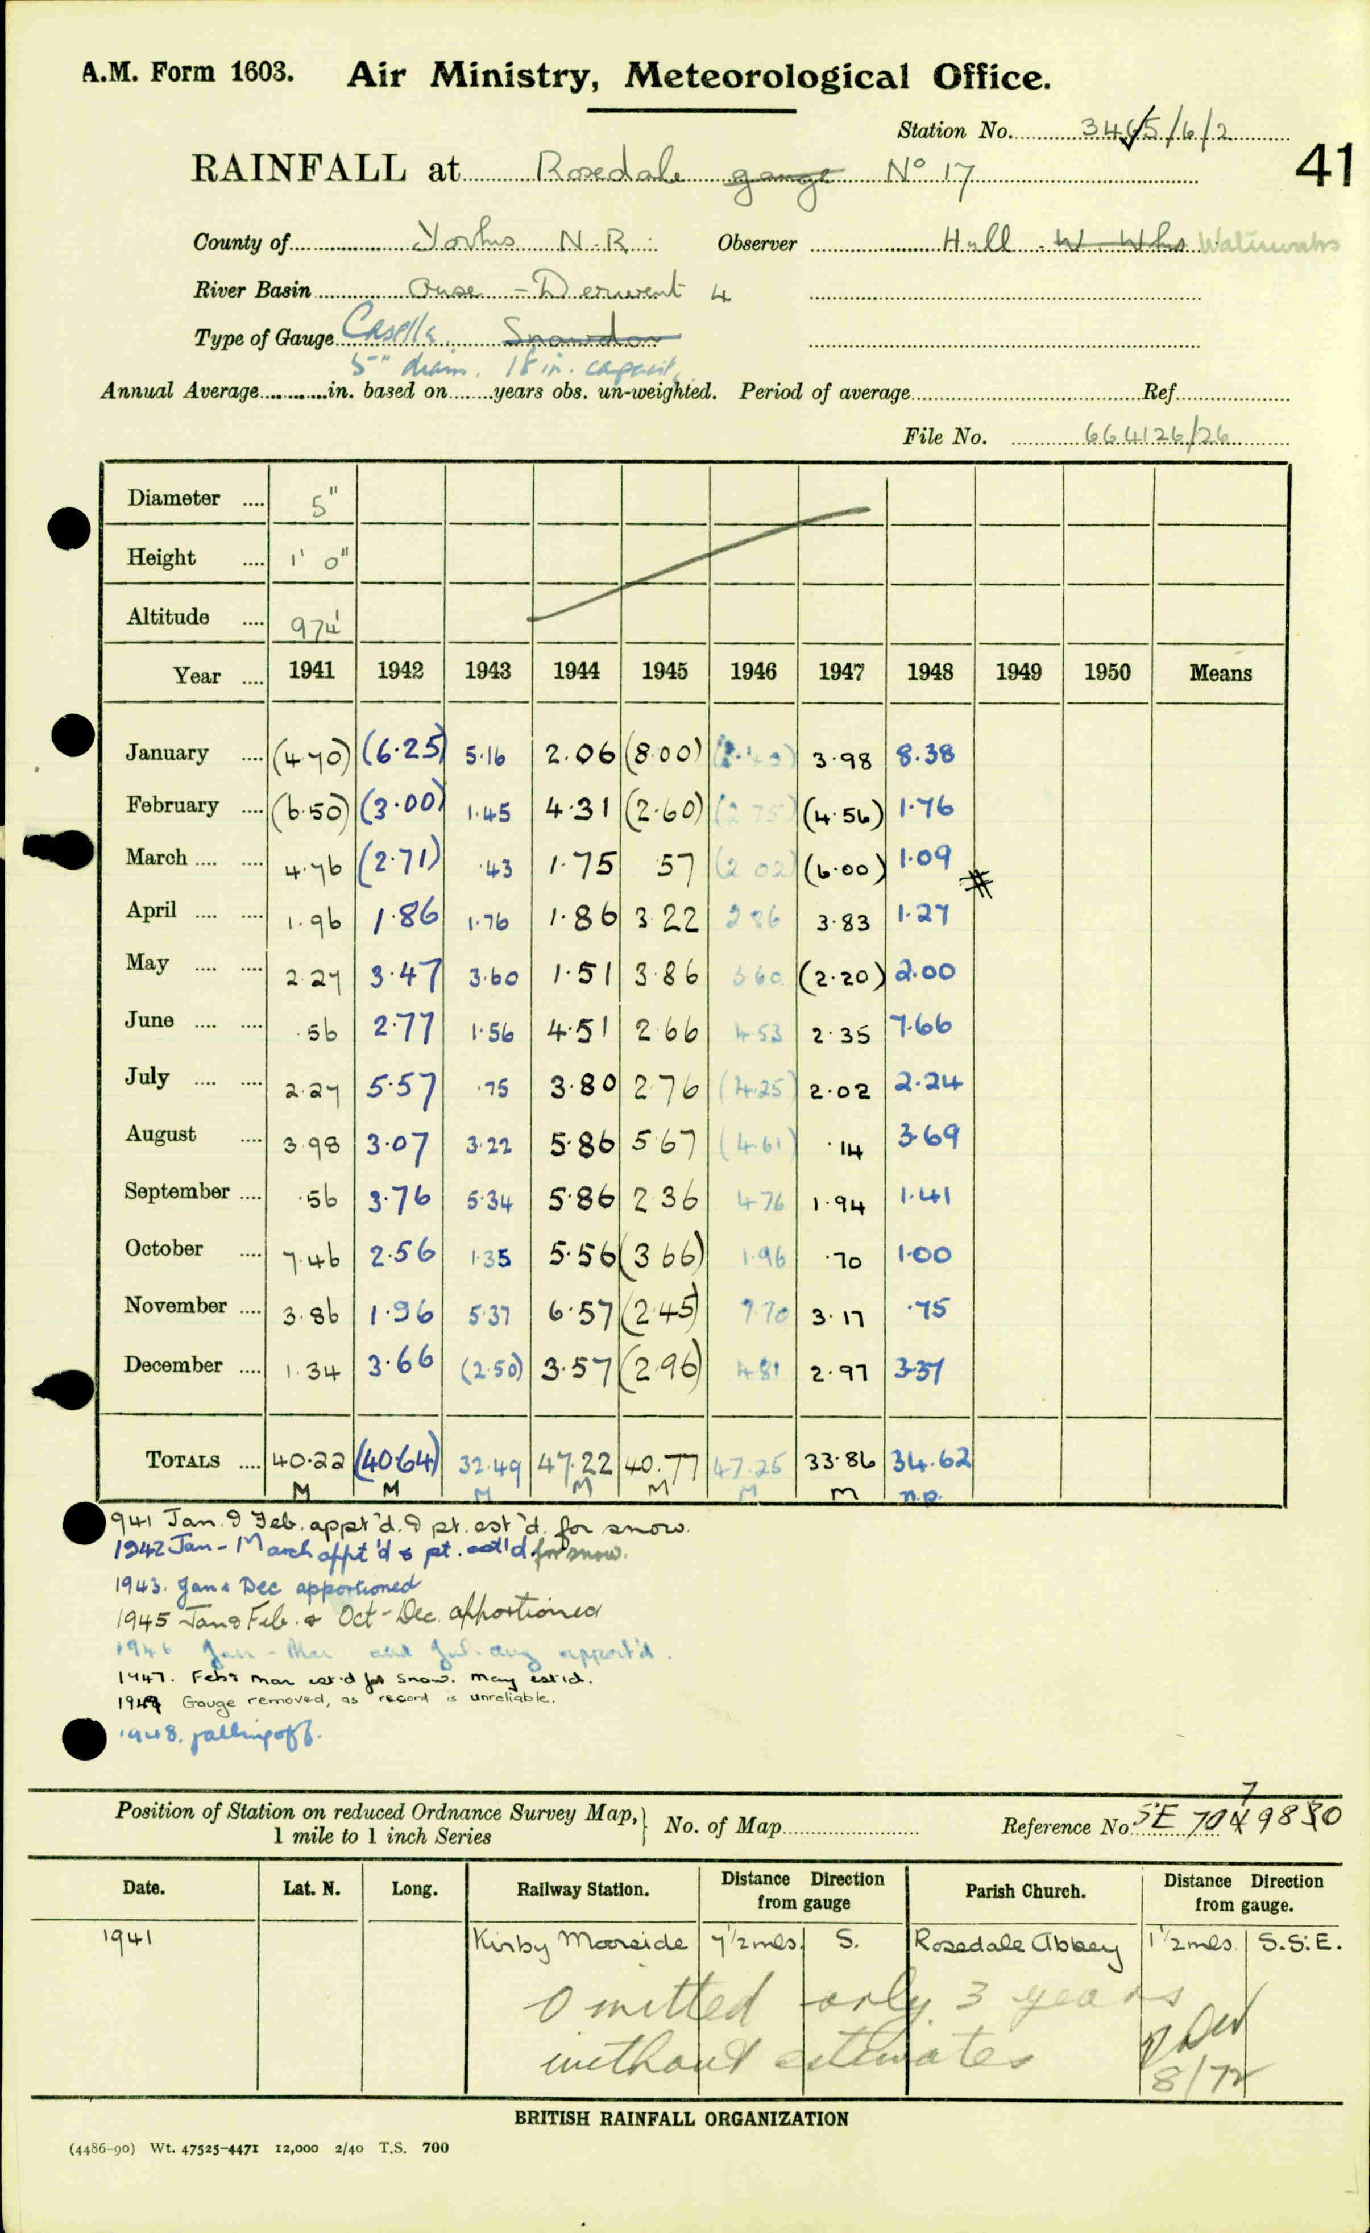 A.M. Form 1603. Air Ministry, Meteorological Office.
Station No. 3465/6/2
41
RAINFALL at Rosedale gauge No 17
County of Yorks N.R. Observer Hull W. Wks Waterworks
River Basin Ouse - Derwent 4
Type of Gauge Casella Snowdon
5" diam. 18 in. capacity
Annual Average in. based on years obs. un-weighted. Period of average Ref.
File No. 664126/26
Diameter .... 5"
Height .... 1' 0"
Altitude .... 974'
Year .... 1941 1942 1943 1944 1945 1946 1947 1948 1949 1950 Means
January .... (4.70) (6.25) 5.16 2.06 (8.00) 3.98 8.38
February .... (6.50) (3.00) 1.45 4.31 (2.60) (2.75) (4.56) 1.76
March .... .... 4.76 (2.71) .43 1.75 57 (2 02) (6.00) 1.09 #
April .... .... 1.96 1.86 1.76 1.86 3.22 2 86 3.83 1.27
May .... .... 2.27 3.47 3.60 1.51 3.86 3.60 (2.20) 2.00
June .... .... .56 2.77 1.56 4.51 2.66 4.53 2.35 7.66
July .... .... 2.27 5.57 .75 3.80 2.76 (4.25) 2.02 2.24
August .... 3.98 3.07 3.22 5.86 5.67 (4.61) .14 3.69
September .... .56 3.76 5.34 5.86 2.36 4.76 1.94 1.41
October .... 7.46 2.56 1.35 5.56 (3 66) 1.96 .70 1.00
November .... 3.86 1.96 5.37 6.57 (2.45) 7.70 3.17 .75
December .... 1.34 3.66 (2.50) 3.57 (2.96) 4.81 2.97 3.37
TOTALS .... 40.22 (40.64) 32.49 47.22 40.77 47.25 33.86 34.62
M M M M M M M n.p.
1941 Jan. & Feb. appt'd. & pt. est'd. for snow.
1942 Jan - March appt'd & pt. est'd for snow.
1943. Jan & Dec apportioned
1945 Jan & Feb. & Oct - Dec. apportioned
1946 Jan - Mar and Jul. Aug apport'd.
1947. Feb & Mar est'd for snow. May est'd.
1949 Gauge removed, as record is unreliable.
1948. falling off.
Position of Station on reduced Ordnance Survey Map, 1 mile to 1 inch Series } No. of Map Reference No. SE 704 9830
7
Date. Lat. N. Long. Railway Station. Distance Direction from gauge Parish Church. Distance Direction from gauge.
1941 Kirby Moorside 7 1/2 mls. S. Rosedale Abbey 1 1/2 mls. S.S.E.
Omitted only 3 years
without estimates
8/72
BRITISH RAINFALL ORGANIZATION
(4486-90) Wt. 47525-4471 12,000 2/40 T.S. 700